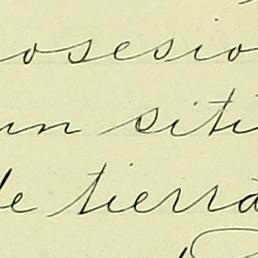 osesio
un siti
de tierra